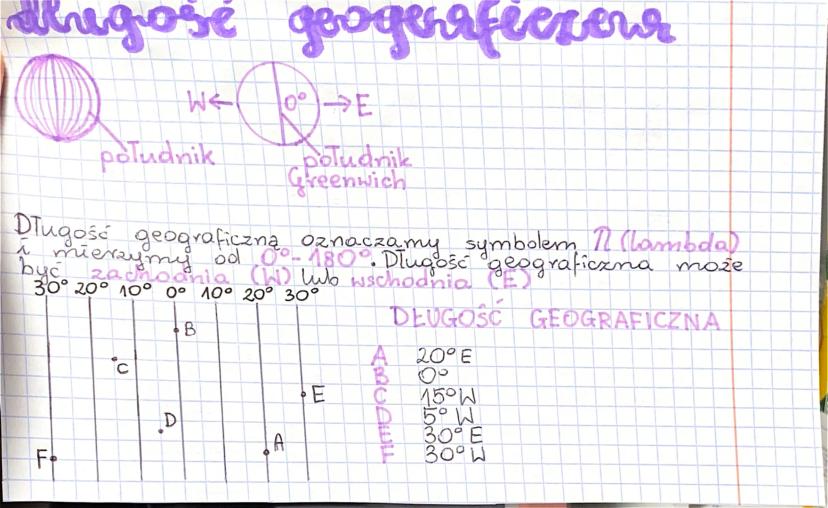 długość geograficzna
W ← 0° → E
południk
południk
Greenwich
Długość geograficzną oznaczamy symbolem λ (lambda)
i mierzymy od 0°-180°. Długość geograficzna może
być zachodnia (W) lub wschodnia (E)
30° 20° 10° 0° 10° 20° 30°
DŁUGOŚĆ GEOGRAFICZNA
B
C
E
D
A
F
A 20°E
B 0°
C 15°W
D 5°W
E 30°E
F 30°W